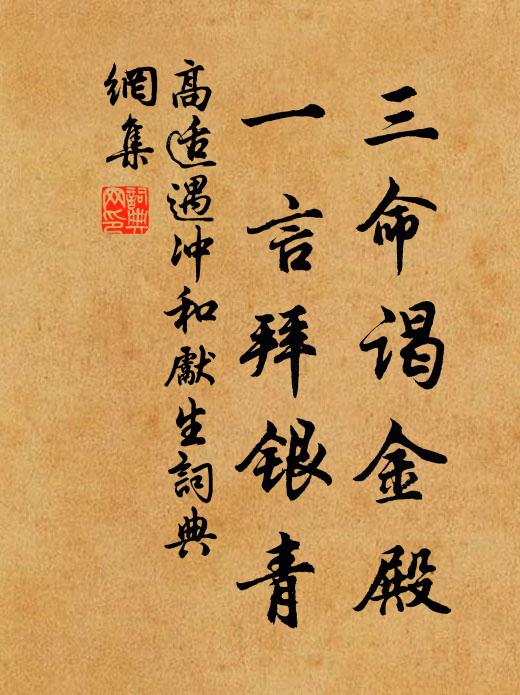 三命谒金殿
一言拜银青
高适遇冲和獻生詞典
網集
詞典
网印